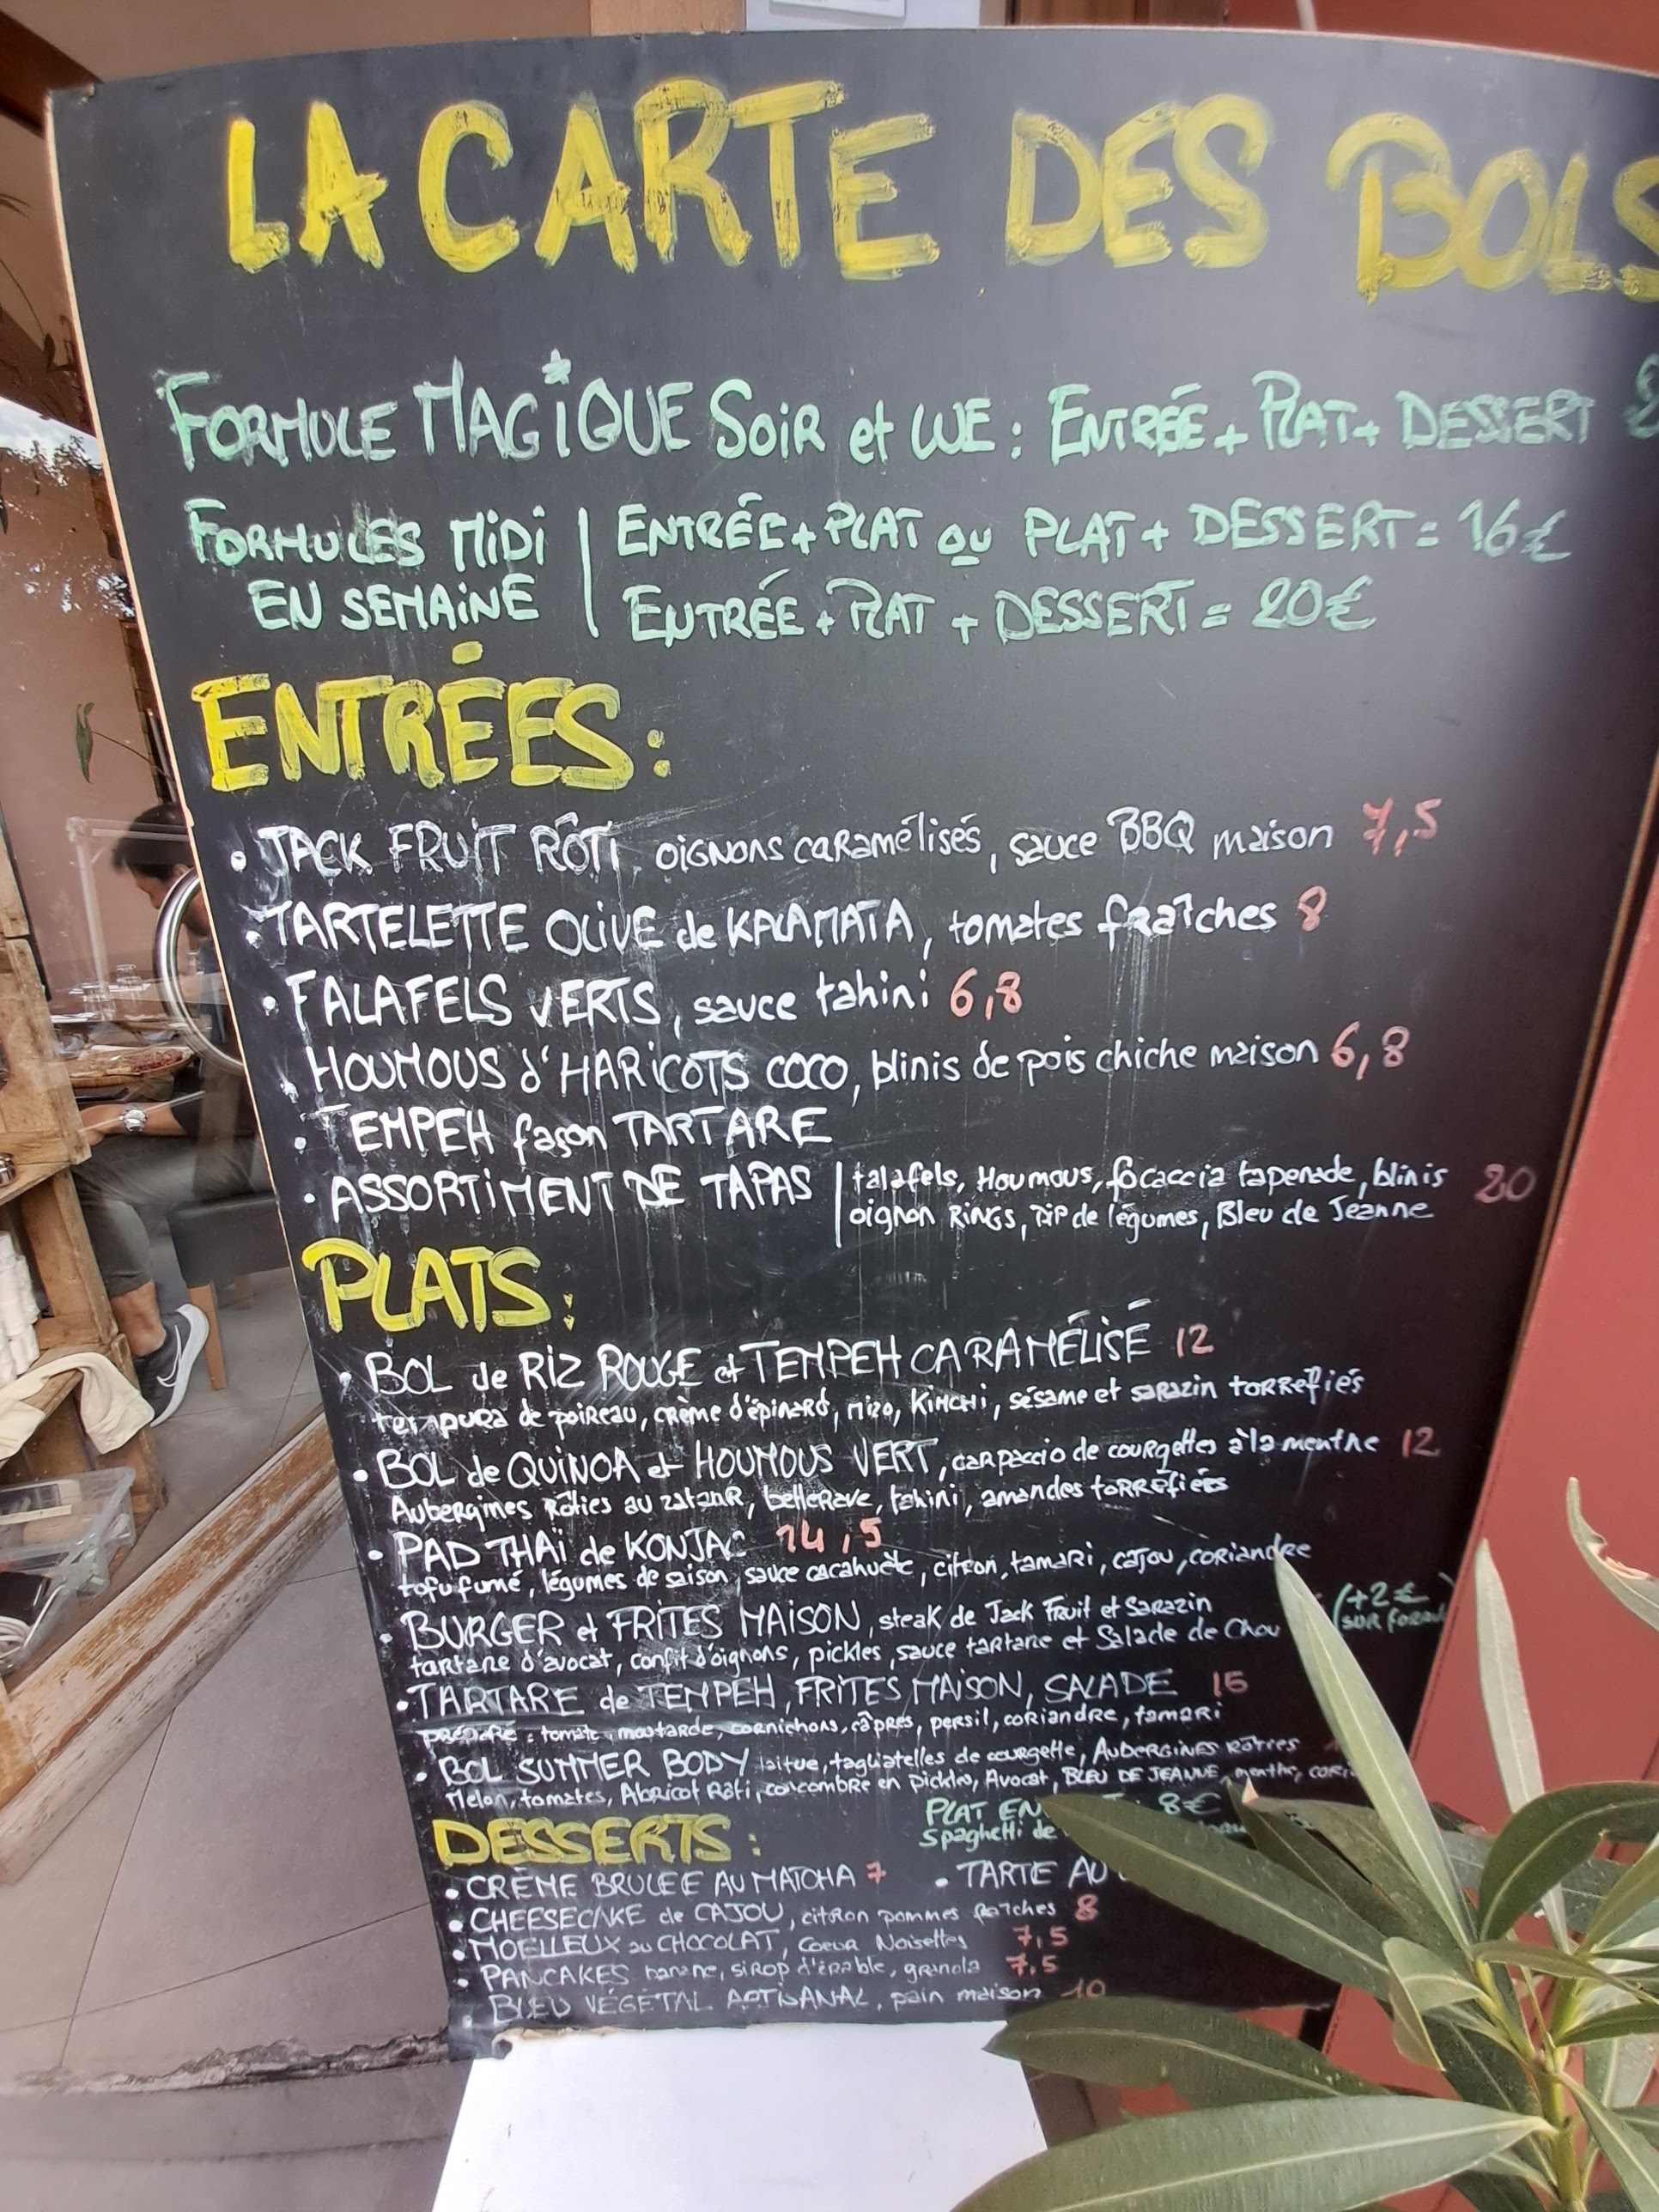 LA CARTE DES BOLS
FORMULE MAGIQUE SOIR et WE : ENTRÉE + PLAT + DESSERT
FORMULES MIDI EN SEMAINE
ENTRÉE + PLAT OU PLAT + DESSERT = 16€
ENTRÉE + PLAT + DESSERT = 20€
ENTRÉES :
• JACK FRUIT RÔTI, oignons caramélisés, sauce BBQ maison 7,5
• TARTELETTE OLIVE de KALAMATA, tomates fraîches 8
• FALAFELS VERTS, sauce tahini 6,8
• HOUMOUS d'HARICOTS COCO, blinis de pois chiche maison 6,8
• TEMPEH façon TARTARE
• ASSORTIMENT DE TAPAS | falafels, Houmous, focaccia tapenade, blinis 20
oignon RINGS, DIP de légumes, Bleu de Jeanne
PLATS :
• BOL de RIZ ROUGE et TEMPEH CARAMÉLISÉ 12
tempura de poireau, crème d'épinard, miso, KIMCHI, sésame et sarazin torréfiés
• BOL de QUINOA et HOUMOUS VERT, carpaccio de courgettes à la menthe 12
Aubergines Rôties au zataar, betterave, tahini, amandes torréfiées
• PAD THAÏ de KONJAC 14,5
tofu fumé, légumes de saison, sauce cacahuète, citron, tamari, cajou, coriandre
• BURGER et FRITES MAISON, steak de Jack Fruit et Sarazin (+2€
tartare d'avocat, confit d'oignons, pickles, sauce tartare et Salade de Chou SUR
• TARTARE de TEMPEH, FRITES MAISON, SALADE 15
préparé : tomate, moutarde, cornichons, câpres, persil, coriandre, tamari
• BOL SUMMER BODY laitue, tagliatelles de courgette, AUBERGINES Rôties
Melon, tomates, Abricot Rôti, concombre en pickles, Avocat, BLEU DE JEANNE, menthe,
PLAT 8€
spaghetti de
DESSERTS :
• CRÈME BRULEE AU MATCHA 7 • TARTE AU
• CHEESECAKE de CAJOU, citron pommes fraîches 8
• MOELLEUX au CHOCOLAT, Coeur Noisettes 7,5
• PANCAKES banane, sirop d'érable, granola 7,5
• BLEU VÉGÉTAL ARTISANAL, pain maison 10